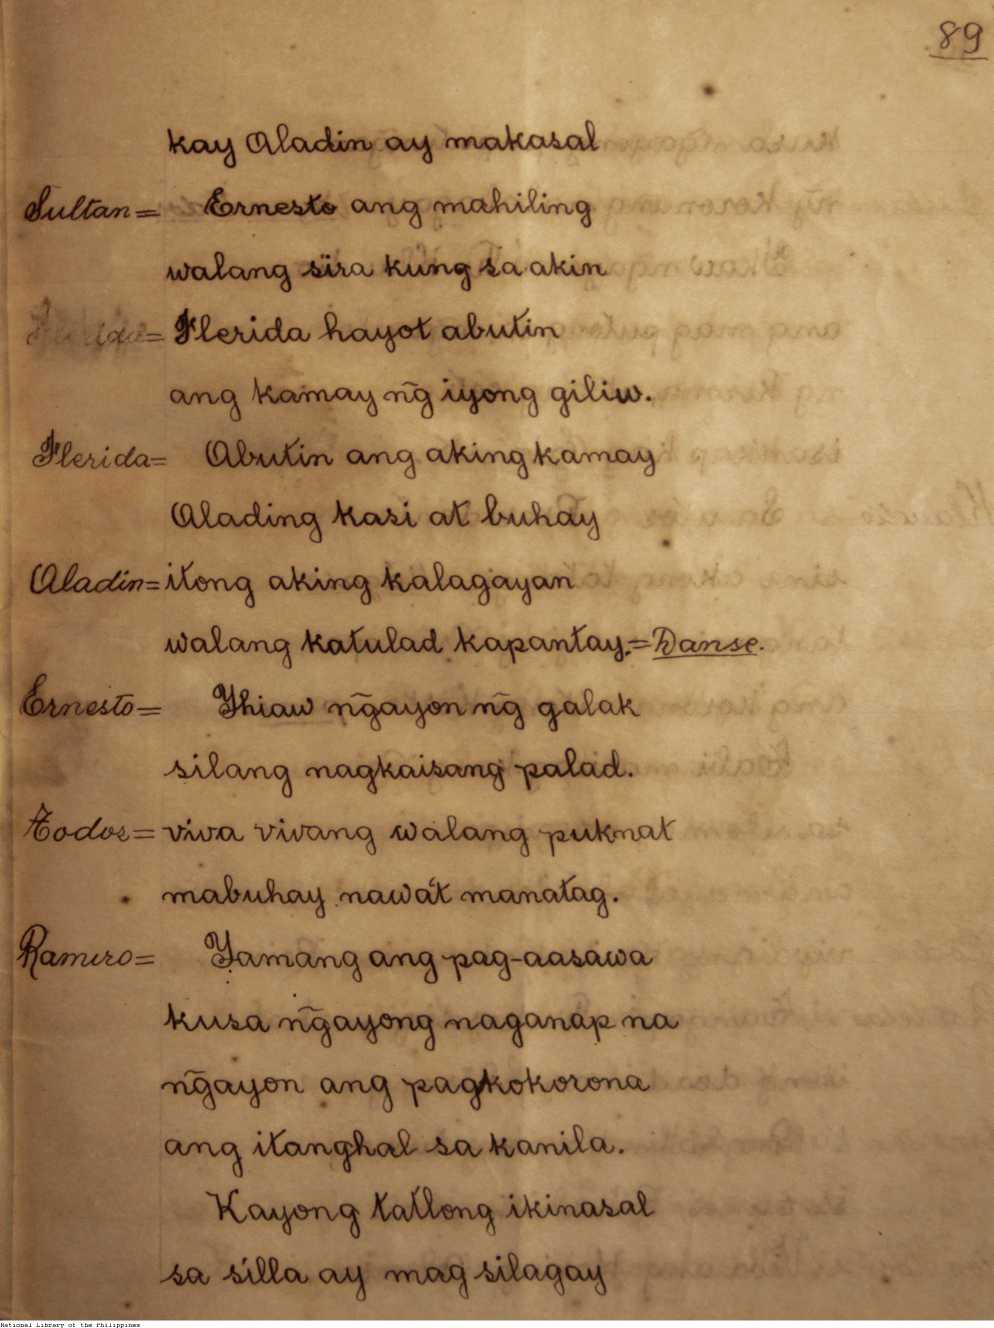 89
kay Aladin ay makasal
Sultan= Ernesto ang mahiling
walang sira kung sa akin
Flerida hayot abutin
ang kamay ng̃ iyong giliw.
Flerida= Abutin ang aking kamay
Alading kasi at buhay
Aladin= itong aking kalagayan
walang katulad kapantay.= Danse.
Ernesto= Yhiaw ng̃ayon ng̃ galak
silang nagkaisang palad.
Todos= viva vivang walang puknat
mabuhay nawa't manatag.
Ramiro= Yamang ang pag-aasawa
kusa ng̃ayong naganap na
ng̃ayon ang pagkokorona
ang itanghal sa kanila.
Kayong tatlong ikinasal
sa silla ay mag silagay
National Library of the Philippines